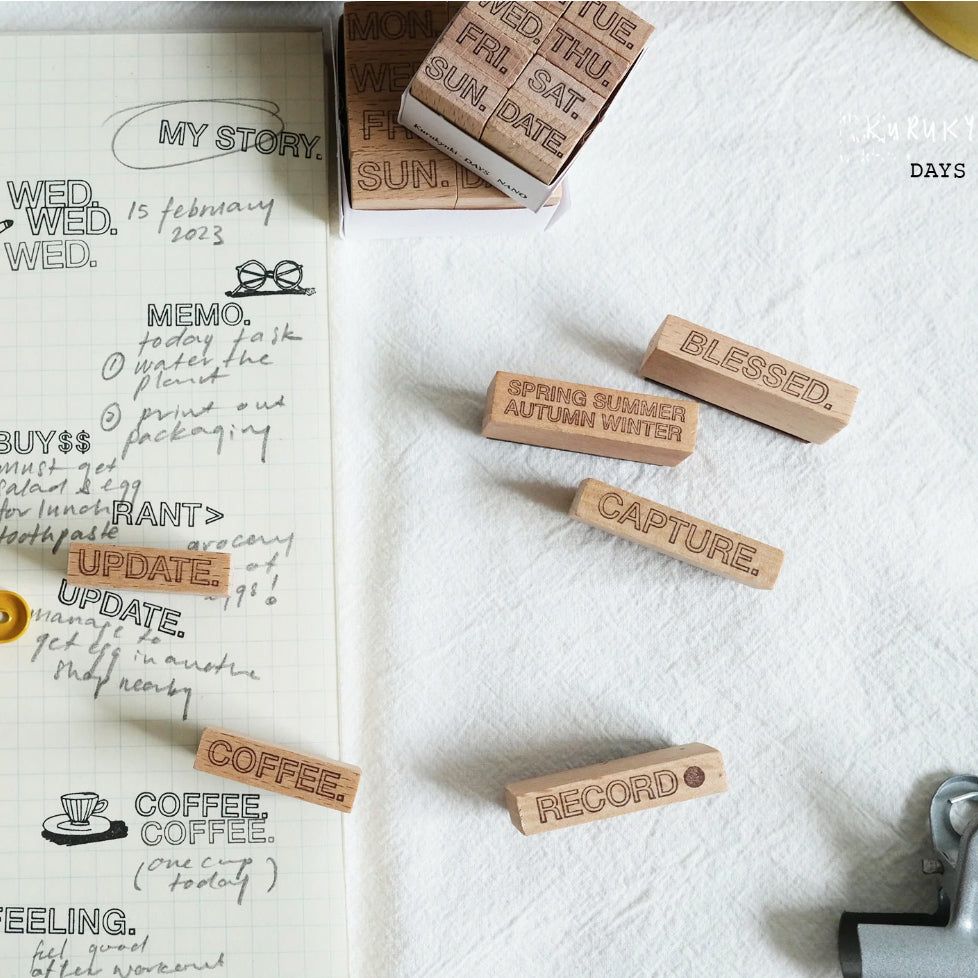 MY STORY.
WED.
WED.
WED.
15 february
2023
MEMO.
today task
① water the
plant
② print out
packaging
BUY$$
must get
salad & egg
for lunch
toothpaste
RANT>
grocery
of
UPDATE.
UPDATE.
manage to
get egg in another
shop nearby
COFFEE.
COFFEE.
COFFEE.
(one cup
today)
FEELING.
feel good
after workout
MON.
WE
FR
SUN. D
WED. TUE.
FRI. THU.
SUN. SAT.
DATE.
Kurukynki DAYS NANO
KURUKY
DAYS
BLESSED.
SPRING SUMMER
AUTUMN WINTER
CAPTURE.
RECORD